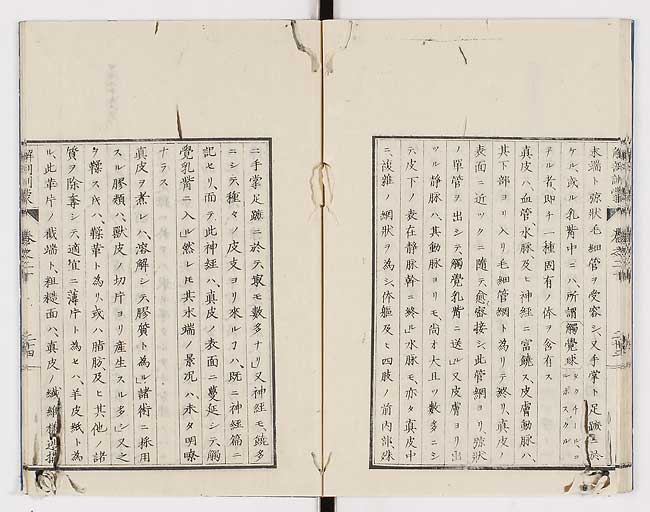 末端ト蹄狀毛細管ヲ受容シ、又手掌ト足蹠ニ於
ケル、或ル乳嘴中ニハ、所謂觸覺球
アル者、即チ一種固有ノ体ヲ含有ス
真皮ハ、血管、水脉、及ヒ神經ニ富饒ス、皮膚動脉ハ、
其下部ヨリ入リ毛細管網ト為リテ終リ、真皮ノ
表面ニ近ックニ隨テ愈密接シ、此管網ヨリ、蹄狀
ノ單管ヲ出シテ觸覺乳嘴ニ送ル」又皮膚ヨリ出
ツル靜脉ハ、其動脉ヨリモ、尚オ大且ツ數多ニシ
テ皮下ノ表在靜脉幹ニ終ル」水脉モ、亦タ真皮中
ニ、複雜ノ網狀ヲ為シ、体軀及ヒ四肢ノ前内部、殊
ニ手掌足蹠ニ於テ最モ數多ナリ」又神經モ、饒多
ニシテ、種々ノ皮支ヨリ來ルヿハ、既ニ神經篇ニ
記セリ、而テ、此神經ハ、真皮ノ表面ニ蔓延シテ、觸
覺乳嘴ニ入ル」然レモ其末端ノ景況ハ、未タ明瞭
ナラス
真皮ヲ煮レハ、溶解シテ膠質ト為ル」諸術ニ採用
スル膠類ハ、獸皮ノ切片ヨリ產生スル多シ」又之
ヲ鞣スルハ、鞣革ト為リ、或ハ脂肪及ヒ其他ノ諸
質ヲ除棄シテ、適宜ニ薄片ト為セハ、羊皮紙ト為
ル、此革片ノ截端ト、粗糙面ハ、真皮ノ纖維樣造搆
解剖訓蒙
卷之二十